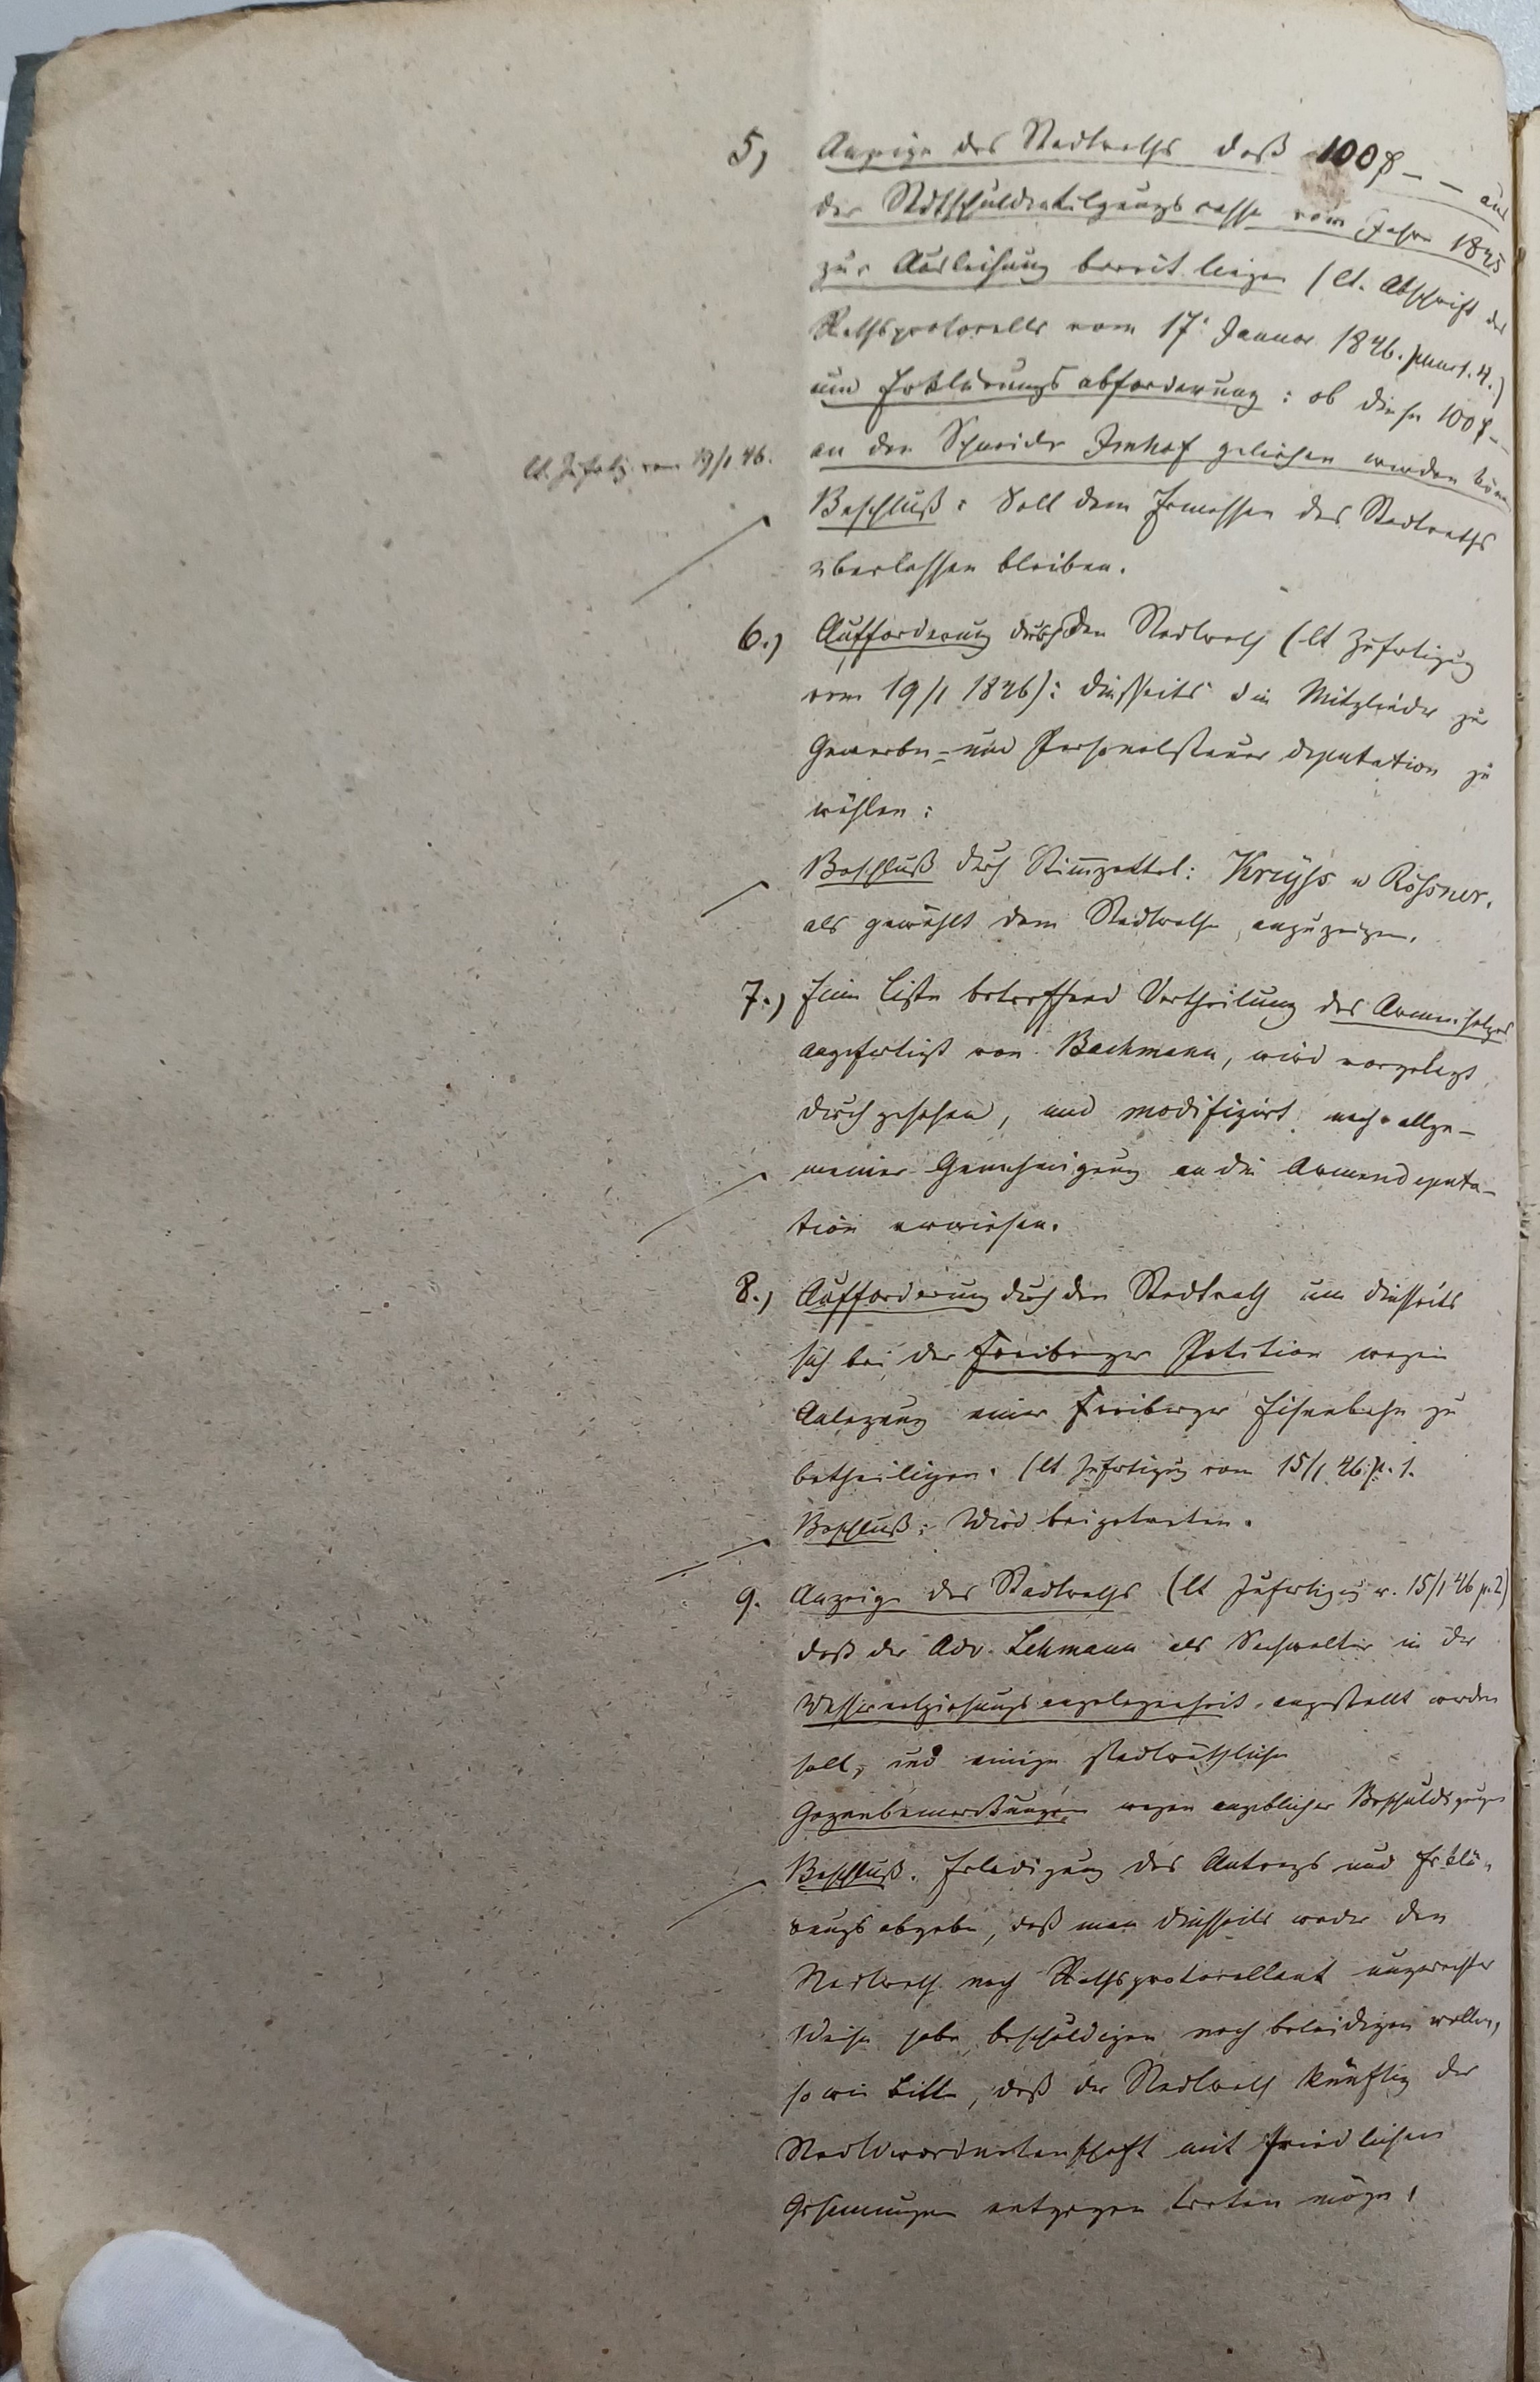 5) Anzeige des Stadtraths daß 100 ₰ – – aus
der Stdtschuldentilgungscasse vom Jahre 1845
zur Ausleihung bereit liegen (lt. Abschrift des
Rathsprotocolls vom 17. Januar 1846. punct. 4.)
um Erklärungsabforderung: ob diese 100 ₰ – –
lt. Zufertig. vom 19/1 46.
an den Schneider Imhof geliehen werden könn
Beschluß: Soll dem Ermessen des Stadtraths
überlassen bleiben.
6.) Aufforderung durch den Stadtrath (lt Zufertigung
vom 19/1 1846): diesseits die Mitglieder zur
Gewerbe- und Personalsteuer deputation zu
wählen:
Beschluß durch Stimmzettel: Kreyss u Rössner.
als gewählt dem Stadtrathe anzuzeigen.
7.) Eine Liste betreffend Vertheilung des Armenholzes
angefertigt von Bachmann, wird vorgelegt
durchgesehen, und modifizirt nach allge-
meiner Genehmigung an die Armendeputa-
tion verwiesen.
8.) Aufforderung durch den Stadtrath um diesseits
sich bei der Freiberger Petition wegen
Anlegung einer Freiberger Eisenbahn zu
betheiligen. (lt Zufertigung vom 15/1 46. p. 1.
Beschluß: Wird beigetreten.
9. Anzeige des Stadtraths (lt Zufertigung v. 15/1 46 p. 2)
daß der Adv. Lehmann als Sachwalter in der
Wasserentziehungsangelegenheit angestellt werden
soll, und einige stadträthliche
Gegenbemerkungen wegen angeblicher Beschuldigungen
Beschluß. Erledigung des Antrags und Erklä-
rungsabgabe, daß man diesseits weder den
Stadtrath noch Rathsprotocollant ungerechter
Weise habe beschuldigen noch beleidigen wollen,
so wie Bitte, daß der Stadtrath künftig der
Stadtverordnetenschaft mit friedlichen
Gesinnungen entgegen treten möge!